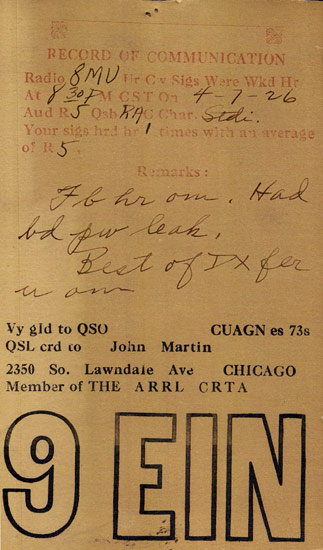 RECORD OF COMMUNICATION
Radio 8MV Ur C w Sigs Were Wkd Hr
At 8 30 P M CST On 4-7-26
Aud R 5 Qsb RAC Char. Stdi.
Your sigs hrd hr 1 times with an average
of R 5.
Remarks:
Fb hr om. Had
bd pw leak.
Best of DX fer
u om
Vy gld to QSO CUAGN es 73s
QSL crd to John Martin
2350 So. Lawndale Ave CHICAGO
Member of THE ARRL CRTA
9 EIN